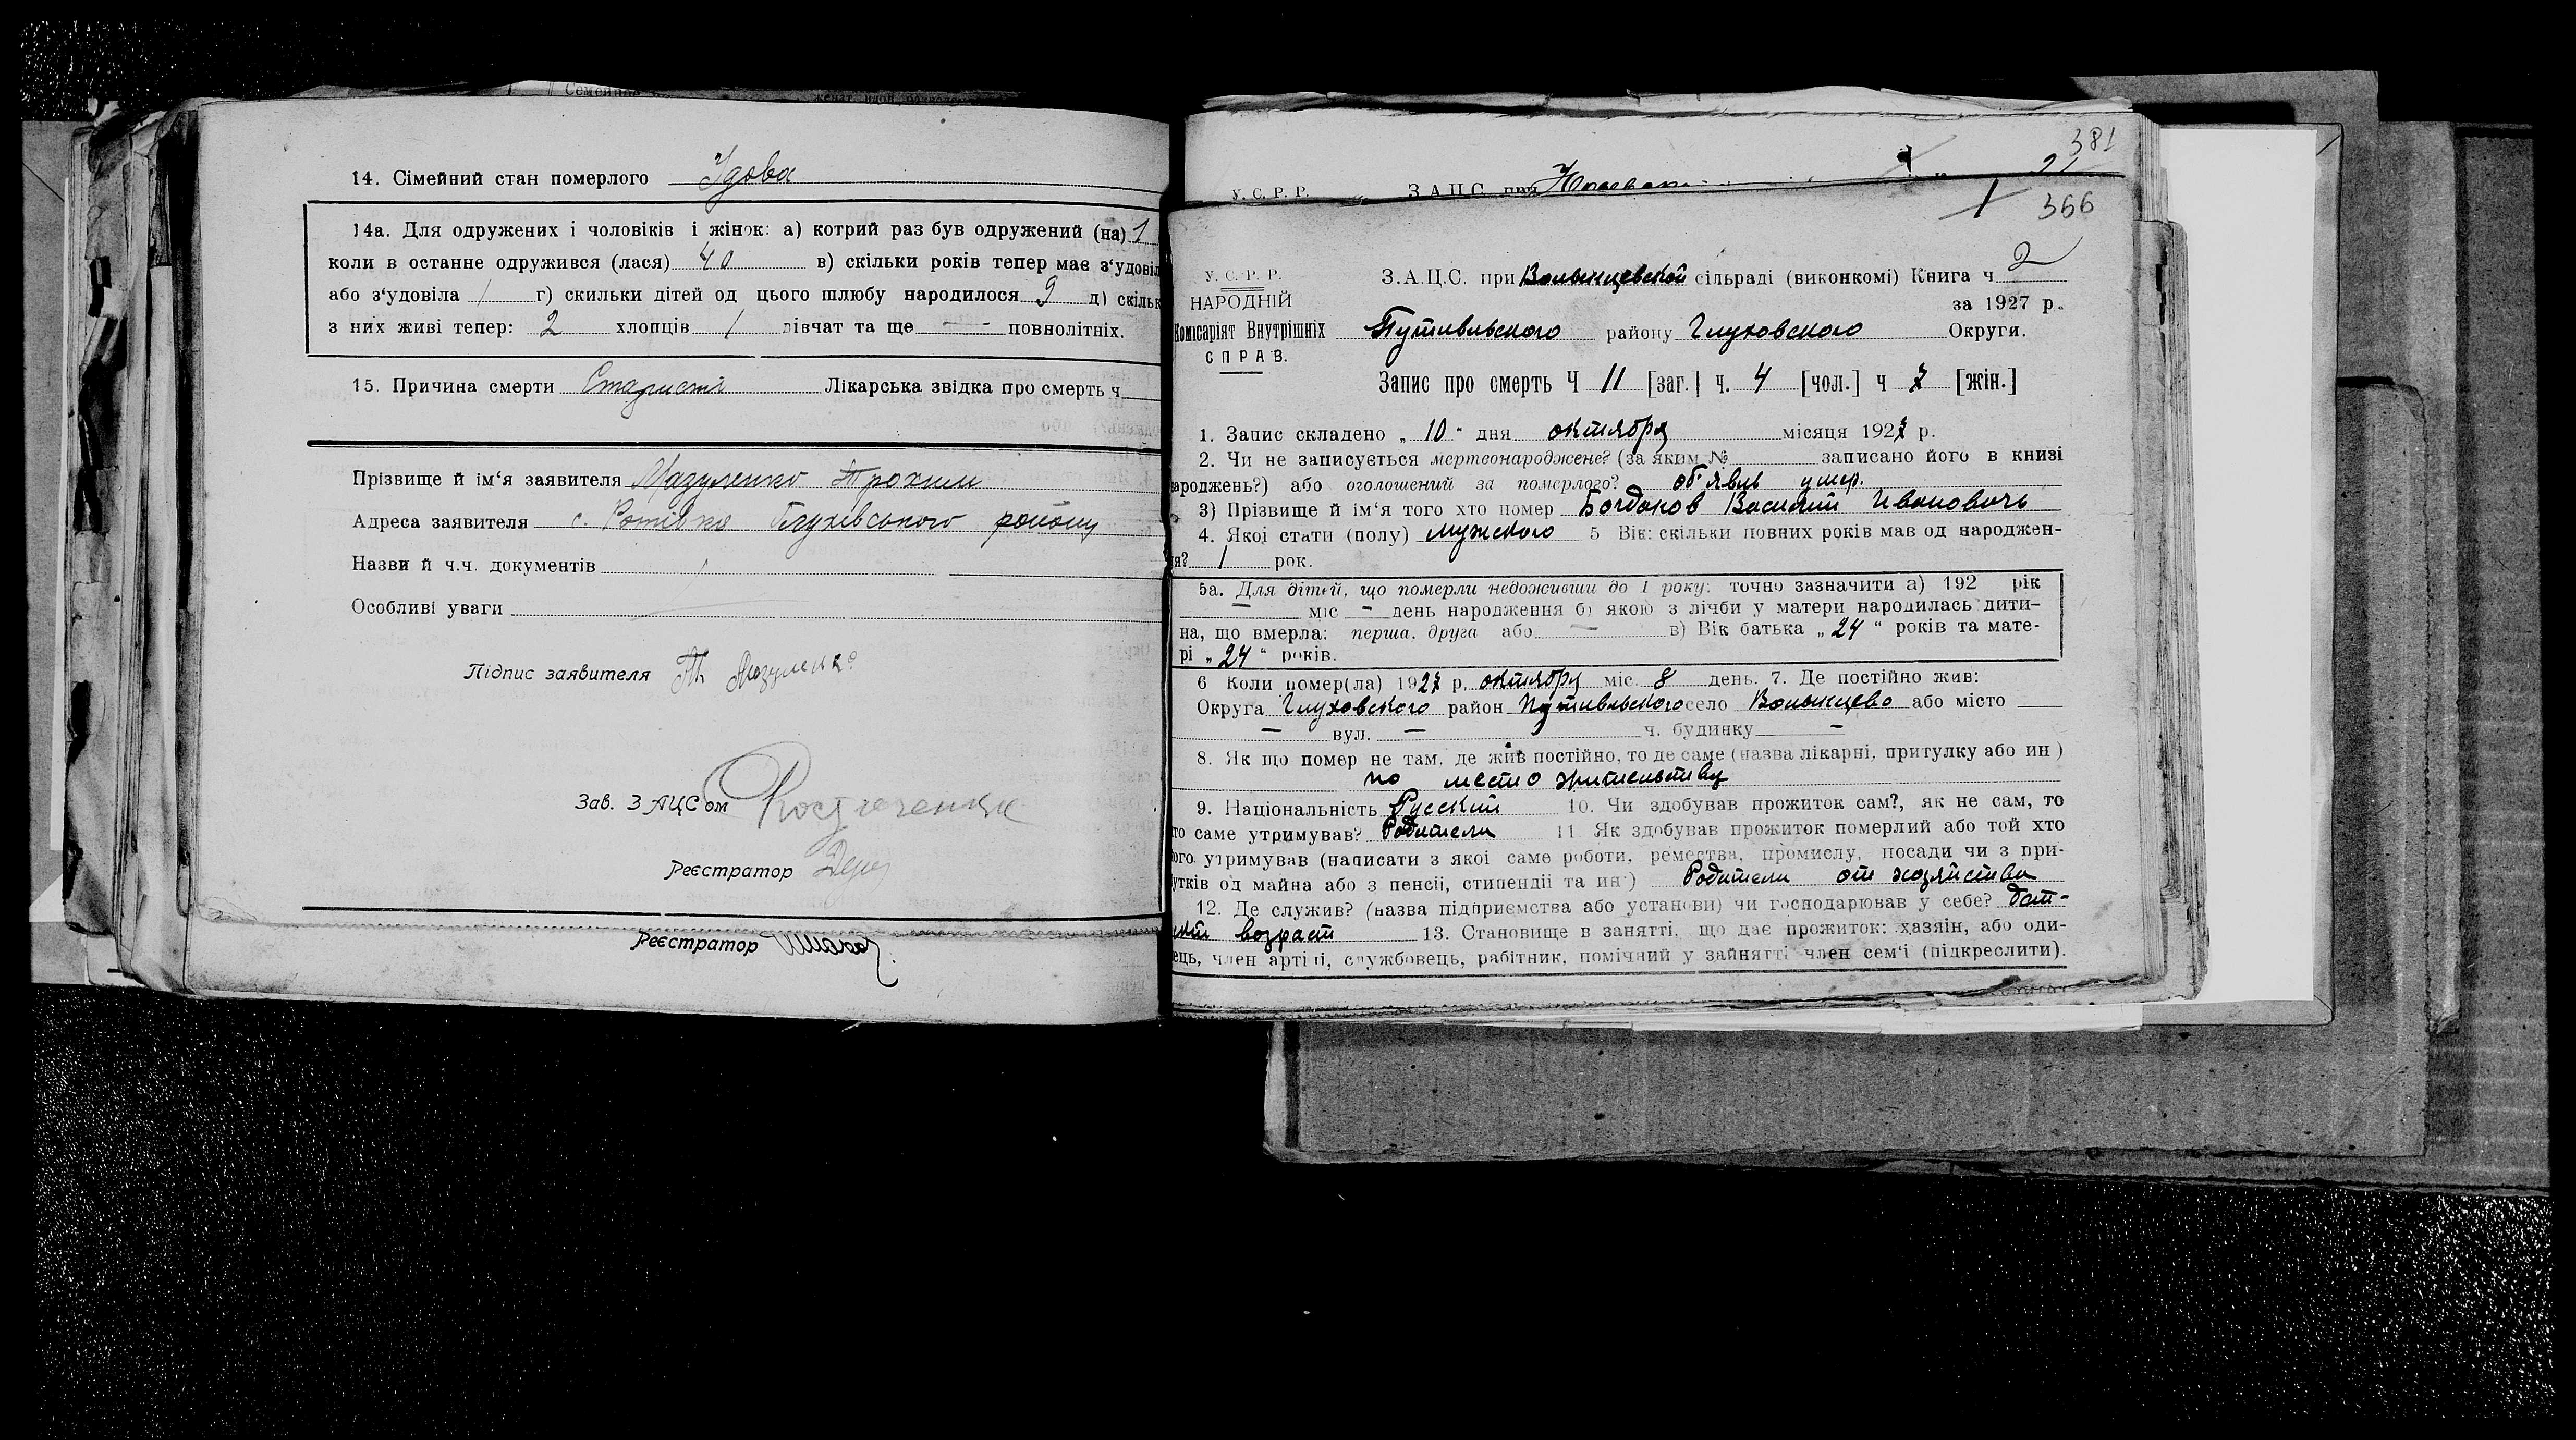 14. Сімейний стан померлого Удова
14а. Для одружених і чоловіків і жінок: а) котрий раз був одружений (на) 1
коли в останне одружився (лася) 40 в) скільки років тепер має з'удовіл
або з'удовіла / г) скильки дітей од цього шлюбу народилося 9 д) скільк
з них живі тепер: 2 хлопців 1 дівчат та ще — повнолітніх.
15. Причина смерти Старисть Лікарська звідка про смерть ч
Прізвище й ім'я заявителя Мазуленко Трохим
Адреса заявителя с. Глухівського району
Назви й ч.ч. документів
Особливі уваги
Підпис заявителя Т. Мазуленко
Зав. ЗАЦСом
Реєстратор
Реєстратор
381
У.С.Р.Р. З.А.Ц.С. при
1 366
У.С.Р.Р. З.А.Ц.С. при Волынцевской сільраді (виконкомі) Книга ч 2
НАРОДНІЙ за 1927 р.
Комісаріят Внутрішніх Путивльского району Глуховского Округи.
СПРАВ.
Запис про смерть Ч 11 [заг.] ч. 4 [чол.] ч 7 [жін.]
1. Запис складено „ 10 " дня октября місяця 1927 р.
2. Чи не записується мертвонароджене? (за яким № записано його в книзі
ароджень?) або оголошений за померлого? об'явль умер.
3) Прізвище й ім'я того хто помер Богданов Василий Иванович
4. Якої стати (полу) мужского 5 Вік: скільки повних років мав од народжен-
я? 1 рок.
5а. Для дітей, що померли недоживши до 1 року: точно зазначити а) 192 рік
— міс — день народження б) якою з лічби у матери народилась дити-
на, що вмерла: перша, друга або — в) Вік батька „ 24 " років та мате-
рі „ 24 " років.
6 Коли помер(ла) 1927 р. октября міс. 8 день. 7. Де постійно жив:
Округа Глуховского район Путивльского село Волынцево або місто —
— вул. — ч. будинку —
8. Як що помер не там, де жив постійно, то де саме (назва лікарні, притулку або ин)
по место жительству
9. Національність Русский 10. Чи здобував прожиток сам?, як не сам, то
то саме утримував? Родители 11 Як здобував прожиток померлий або той хто
ого утримував (написати з якої саме роботи, ремества, промислу, посади чи з при-
утків од майна або з пенсії, стипендії та ин) Родители от хозяйства
12. Де служив? (назва підприємства або установи) чи господарював у себе? дет-
ский возраст 13. Становище в занятті, що дає прожиток: хазяін, або оди-
ець, член артілі, службовець, рабітник, помічний у зайнятті член сем'ї (підкреслити).